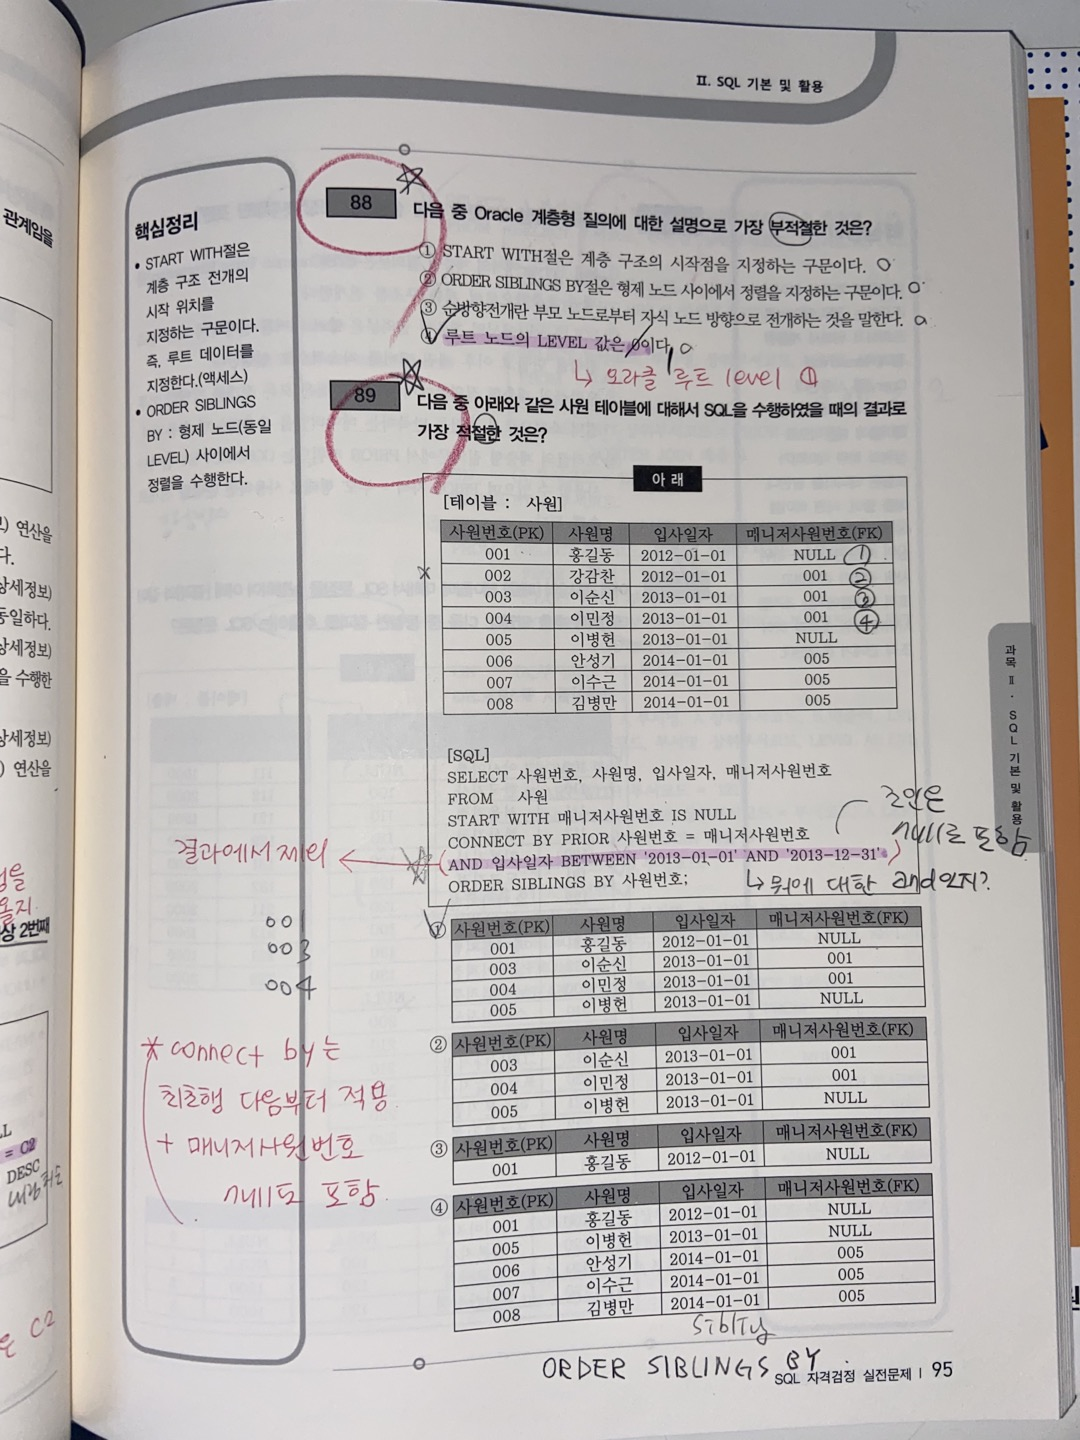 II. SQL 기본 및 활용
관계임을
핵심정리
• START WITH절은
계층 구조 전개의
시작 위치를
지정하는 구문이다.
즉, 루트 데이터를
지정한다.(액세스)
• ORDER SIBLINGS
BY : 형제 노드(동일
LEVEL) 사이에서
정렬을 수행한다.
88 다음 중 Oracle 계층형 질의에 대한 설명으로 가장 부적절한 것은?
① START WITH절은 계층 구조의 시작점을 지정하는 구문이다. O
② ORDER SIBLINGS BY절은 형제 노드 사이에서 정렬을 지정하는 구문이다. O
③ 순방향전개란 부모 노드로부터 자식 노드 방향으로 전개하는 것을 말한다. O
④ 루트 노드의 LEVEL 값은 0이다. O
↳ 오라클 루트 level ①
89 다음 중 아래와 같은 사원 테이블에 대해서 SQL을 수행하였을 때의 결과로
가장 적절한 것은?
아 래
[테이블 : 사원]
사원번호(PK) 사원명 입사일자 매니저사원번호(FK)
001 홍길동 2012-01-01 NULL ①
002 강감찬 2012-01-01 001 ②
003 이순신 2013-01-01 001 ③
004 이민정 2013-01-01 001 ④
005 이병헌 2013-01-01 NULL
006 안성기 2014-01-01 005
007 이수근 2014-01-01 005
008 김병만 2014-01-01 005
[SQL]
SELECT 사원번호, 사원명, 입사일자, 매니저사원번호
FROM 사원
START WITH 매니저사원번호 IS NULL
CONNECT BY PRIOR 사원번호 = 매니저사원번호
AND 입사일자 BETWEEN '2013-01-01' AND '2013-12-31'
ORDER SIBLINGS BY 사원번호;
조인은
null로 포함
↳ 뭐에 대한 and인지?
결과에서 제외
001
003
004
① 사원번호(PK) 사원명 입사일자 매니저사원번호(FK)
001 홍길동 2012-01-01 NULL
003 이순신 2013-01-01 001
004 이민정 2013-01-01 001
005 이병헌 2013-01-01 NULL
② 사원번호(PK) 사원명 입사일자 매니저사원번호(FK)
003 이순신 2013-01-01 001
004 이민정 2013-01-01 001
005 이병헌 2013-01-01 NULL
③ 사원번호(PK) 사원명 입사일자 매니저사원번호(FK)
001 홍길동 2012-01-01 NULL
④ 사원번호(PK) 사원명 입사일자 매니저사원번호(FK)
001 홍길동 2012-01-01 NULL
005 이병헌 2013-01-01 NULL
006 안성기 2014-01-01 005
007 이수근 2014-01-01 005
008 김병만 2014-01-01 005
* connect by는
최초행 다음부터 적용
+ 매니저사원번호
null도 포함
ORDER SIBLINGS BY
SQL 자격검정 실전문제 | 95
과목 II · SQL 기본 및 활용
연산을
다.
상세정보)
동일하다.
상세정보)
을 수행한
상세정보)
연산을
상 2번째
= C2
DESC
C2